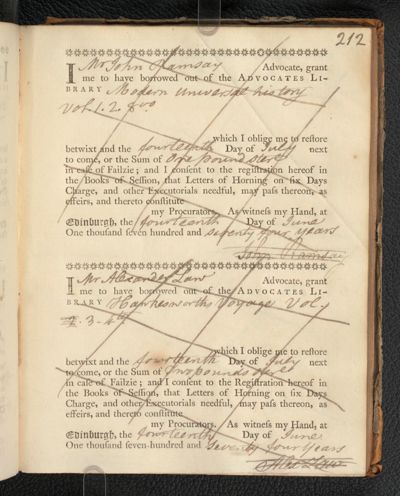 212
I Mr John Ramsay Advocate, grant
me to have borrowed out of the ADVOCATES LI-
BRARY Modern universal history
vol. 1. 2. 8vo
which I oblige me to restore
betwixt and the fourteenth Day of July next
to come, or the Sum of One pound ster:
in case of Failzie; and I consent to the registration hereof in
the Books of Session, that Letters of Horning on six Days
Charge, and other Executorials needful, may pass thereon, as
effeirs, and thereto constitute
my Procurators. As witness my Hand, at
Edinburgh, the fourteenth Day of June
One thousand seven hundred and seventy four years
John Ramsay
I Mr Alexander Law Advocate, grant
me to have borrowed out of the ADVOCATES LI-
BRARY Hawkesworths Voyage Vol.
2. 3. 4to
which I oblige me to restore
betwixt and the fourteenth Day of July next
to come, or the Sum of two pounds ster:
in case of Failzie; and I consent to the Registration hereof in
the Books of Session, that Letters of Horning on six Days
Charge, and other Executorials needful, may pass thereon, as
effeirs, and thereto constitute
my Procurators. As witness my Hand, at
Edinburgh, the fourteenth Day of June
One thousand seven hundred and seventy four years
Alex Law